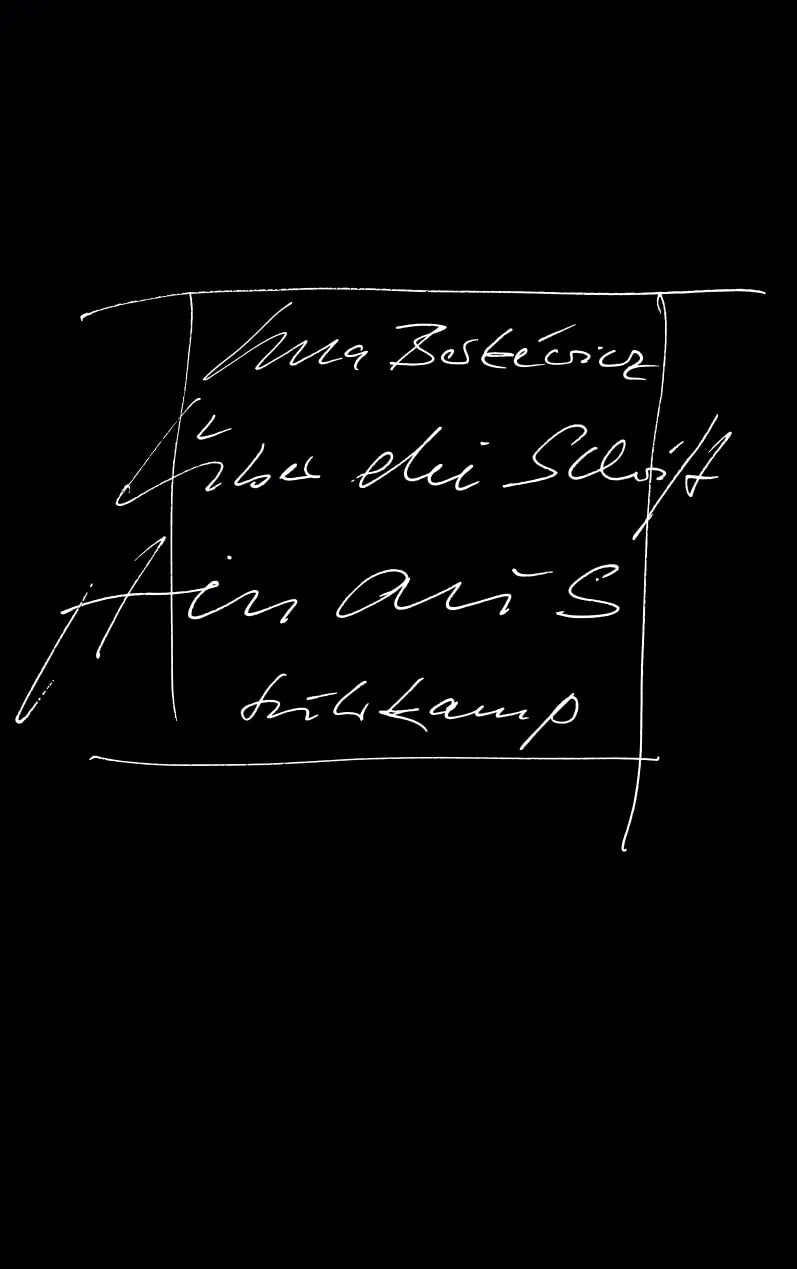 Ulla Berkéwicz
Über die Schrift
Hinaus
Suhrkamp